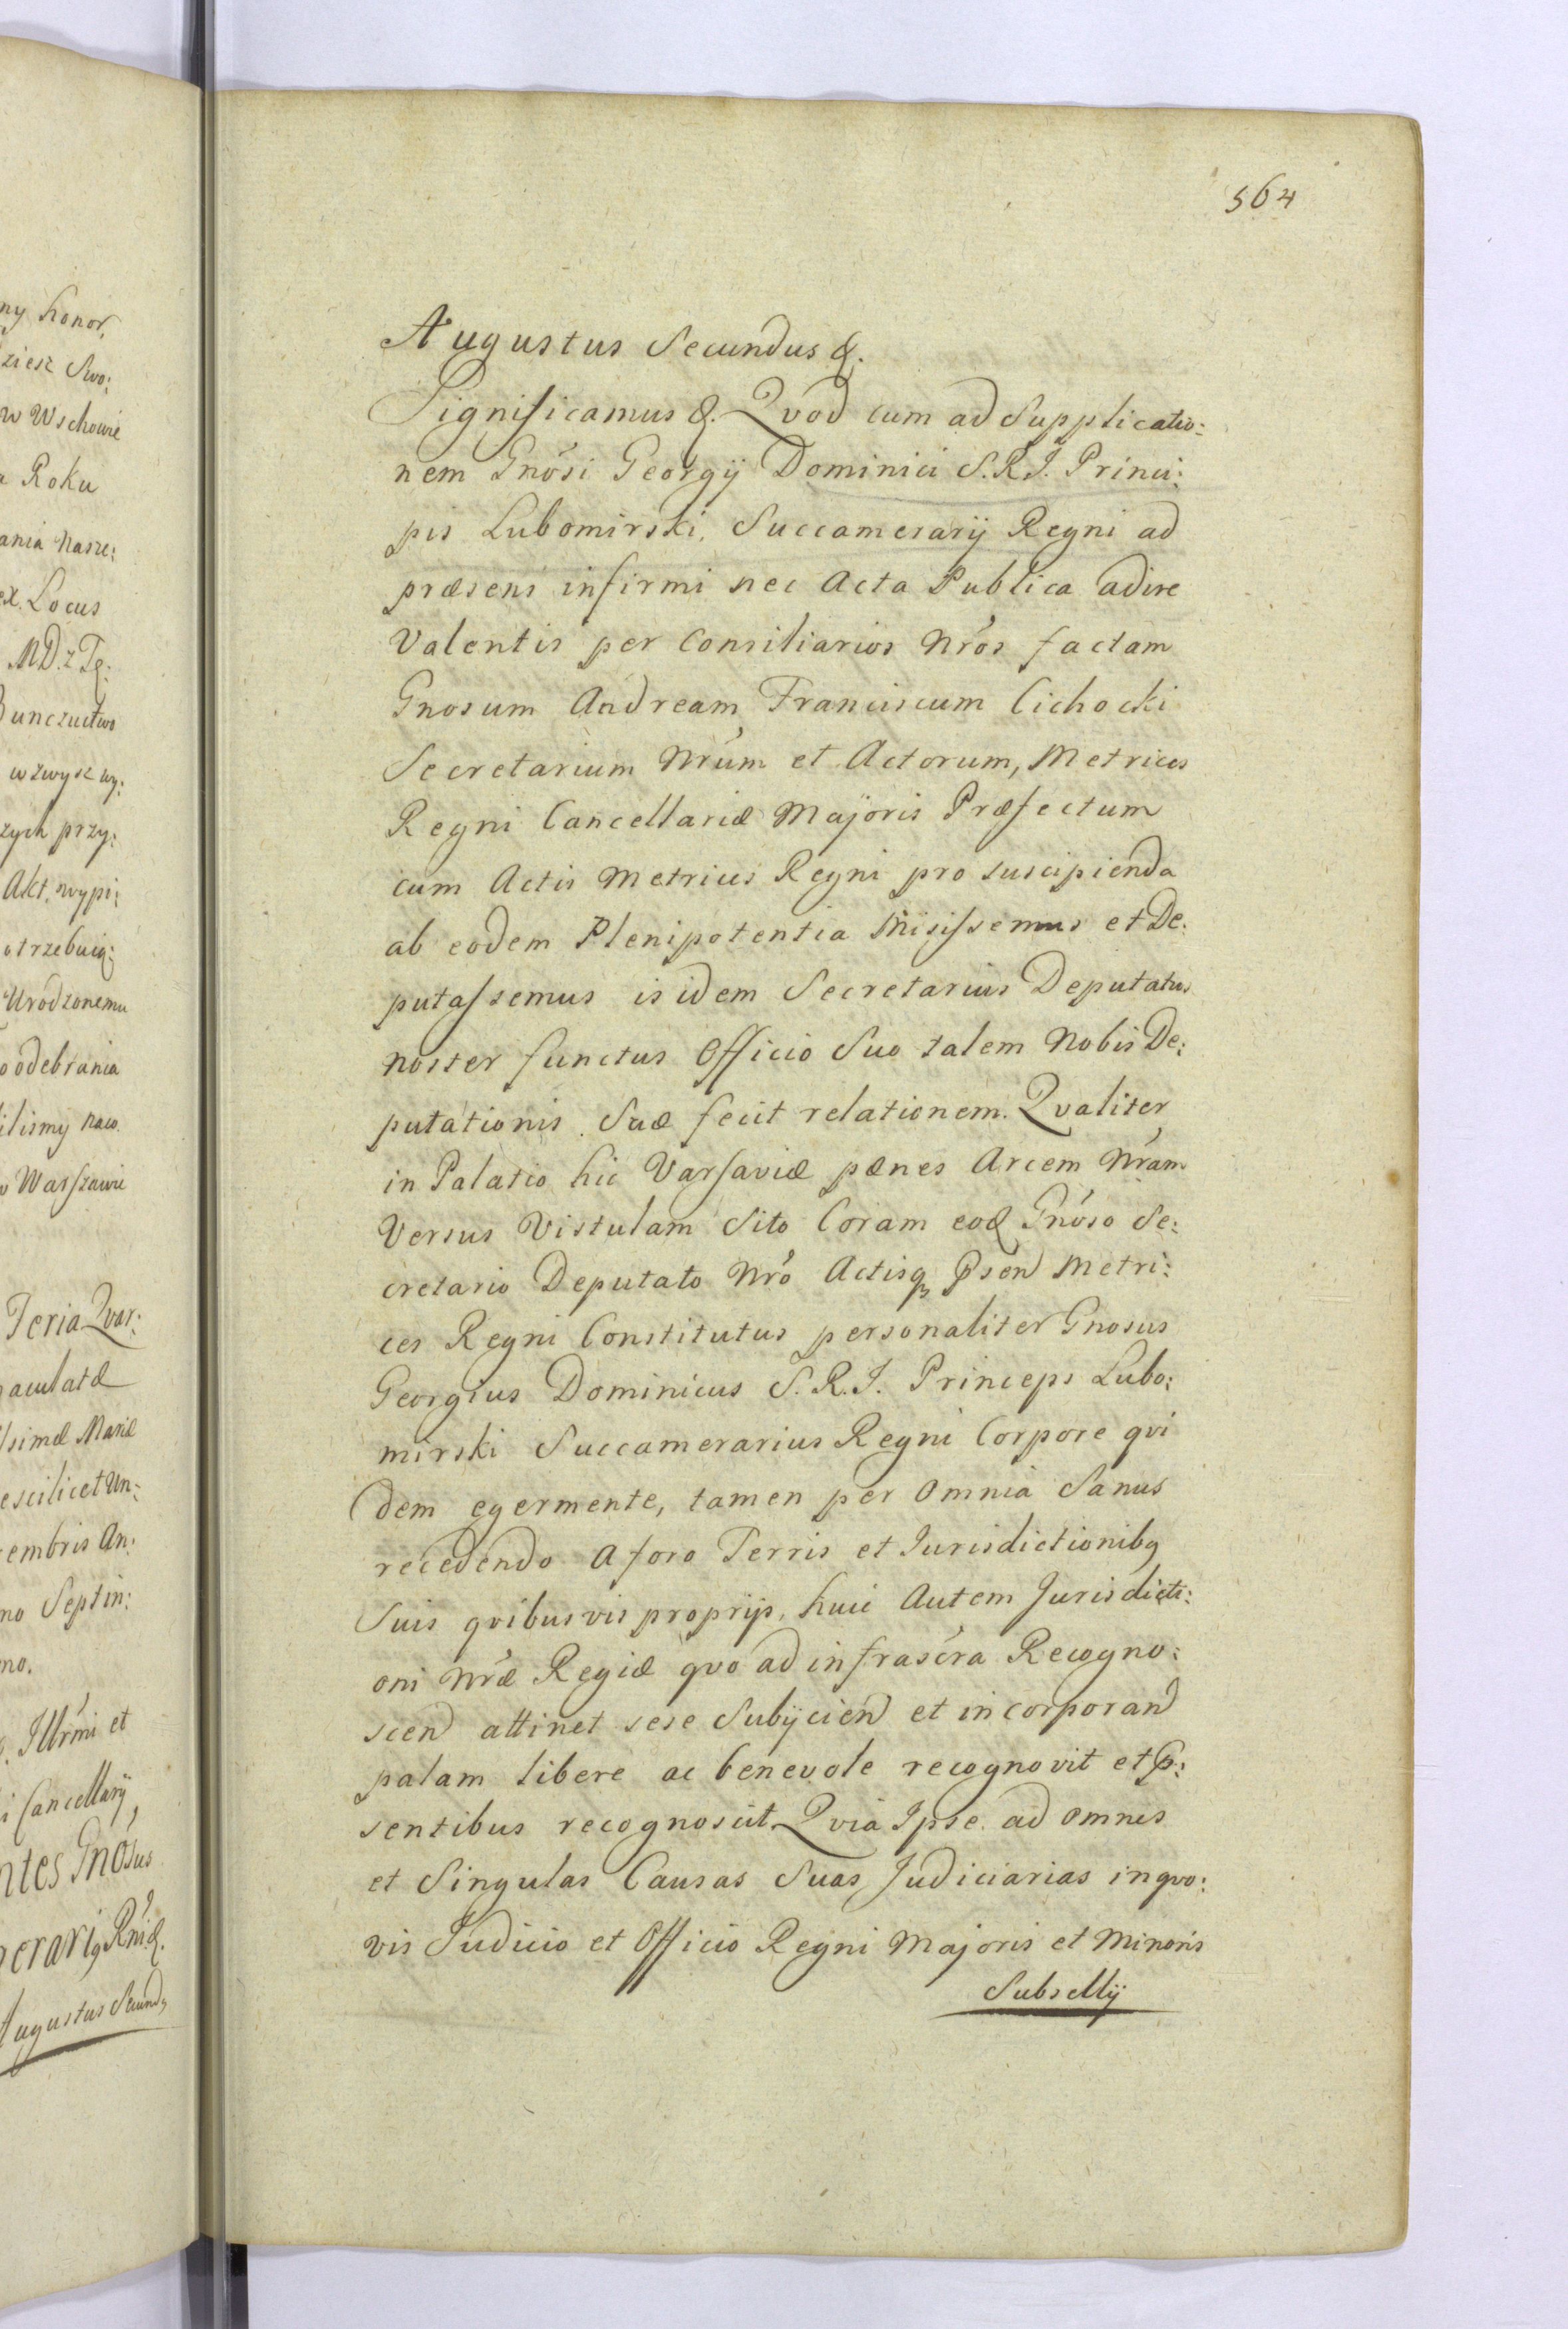 564
Augustus Secundus &.
Significamus &. Qvod cum ad Supplicatio:
nem Gnosi Georgij Dominici S.R.J. Princi:
pis Lubomirski, Succamerarij Regni ad
præsens infirmi nec Acta Publica adire
Valentis per Consiliarios Nros factam
Gnosum Andream Franciscum Cichocki
Secretarium Nrum et Actorum, Metrices
Regni Cancellariæ Majoris Præfectum
cum Actis Metrices Regni pro suscipienda
ab eodem Plenipotentia Misissemus et De:
putassemus is idem Secretarius Deputatus
noster functus Officio Suo talem Nobis De:
putationis Suæ fecit relationem. Qvaliter
in Palatio hic Varsaviæ pænes Arcem Nram
Versus Vistulam Sito Coram eod Gnoso Se:
cretario Deputato Nro Actisq Psen Metri:
ces Regni Constitutus personaliter Gnosus
Georgius Dominicus S.R.J. Princeps Lubo:
mirski Succamerarius Regni Corpore qvi
dem egermente, tamen per Omnia Sanus
recedendo A foro Terris et Jurisdictionibq
Suis qvibusvis proprijs, huic Autem Jurisdicti:
oni Nræ Regiæ qvo ad infrascra Recogno:
scen attinet sese Subijcien et incorporan
palam libere ac benevole recognovit et P:
sentibus recognoscit. Qvia Ipse ad omnes
et Singulas Causas Suas Judiciarias in qvo:
vis Judicio et Officio Regni Majoris et Minoris
Subsellij
ny honor,
ziesz Swo:
w Wschowie
a Roku
ania Nasze:
ex. Locus
MD. z Tę:
Bunczuctwo
wzwysz wy:
zych przy:
Akt. wypi:
otrzebuią:
Urodzonemu
odebrania
ilismy naco
w Warszawie
Feria Qvar:
aculatæ
ssimæ Mariæ
escilicet Un:
embris An:
no Septin:
mo.
Illrmi et
i Cancellarij
ntes Gnosus
erarij Rni &.
Augustus Secundq